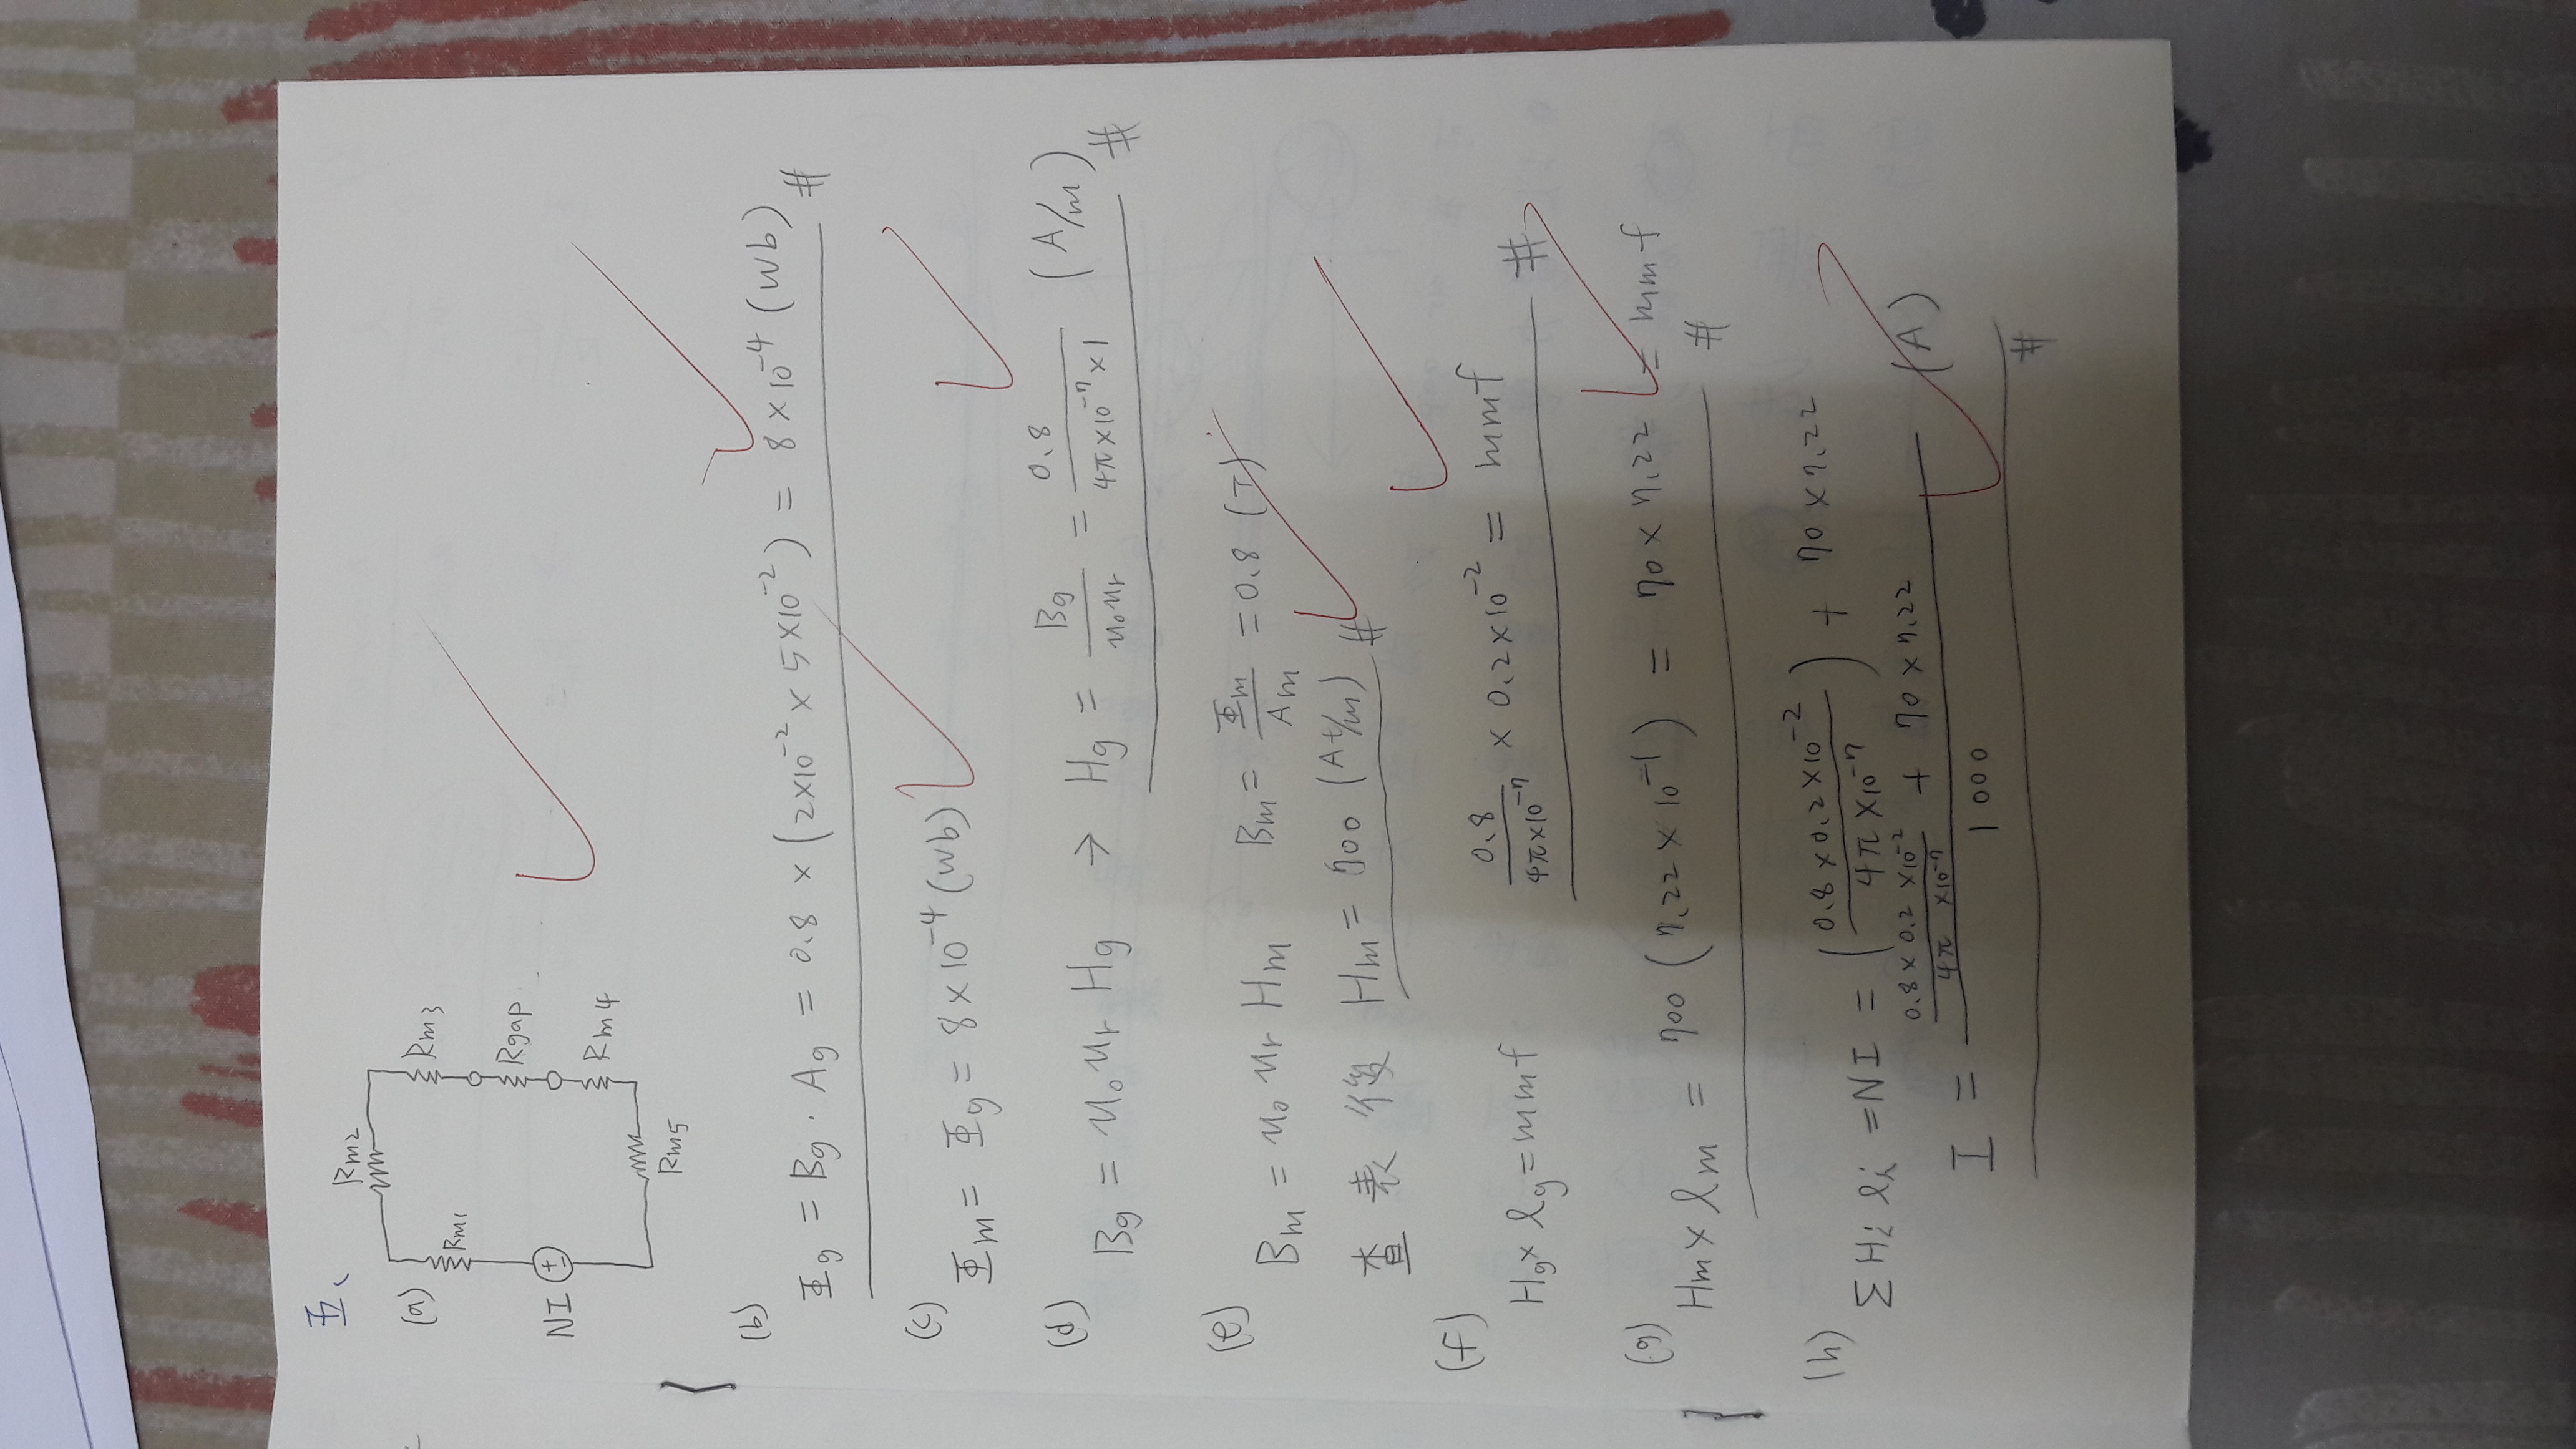 五、
(a)
Rm2
Rm3
Rm1
Rgap
NI
Rm4
Rm5
(b)
Φg = Bg · Ag = 0.8 × (2×10^-2 × 5×10^-2) = 8×10^-4 (Wb) #
(c)
Φm = Φg = 8×10^-4 (Wb)
(d)
Bg = u0ur Hg → Hg = Bg/u0ur = 0.8/(4π×10^-7×1) (A/m) #
(e)
Bm = u0 ur Hm Bm = Φm/Am = 0.8 (T)
查表後 Hm = 700 (At/m) #
(f)
Hg× lg = mmf 0.8/(4π×10^-7) × 0.2×10^-2 = mmf #
(g)
Hm× lm = 700 (7.22×10^-1) = 70×7.22 = mmf #
(h)
ΣHi li = NI = (0.8×0.2×10^-2/(4π×10^-7)) + 70×7.22
I = (0.8×0.2×10^-2/(4π×10^-7) + 70×7.22)/1000 (A) #